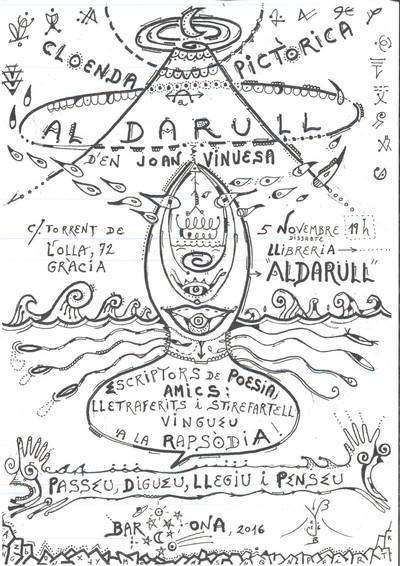 CLOENDA PICTÒRICA
AL DARULL
D'EN JOAN VINUESA
C/ TORRENT DE
L'OLLA, 72
GRÀCIA
5 NOVEMBRE 19 h
DISSABTE
LLIBRERIA
"ALDARULL"
ESCRIPTORS DE POESIA,
AMICS:
LLETRAFERITS i STIREFARTELL
VINGUEU
A LA RAPSÒDIA!
PASSEU, DIGUEU, LLEGIU i PENSEU
BAR ONA, 2016